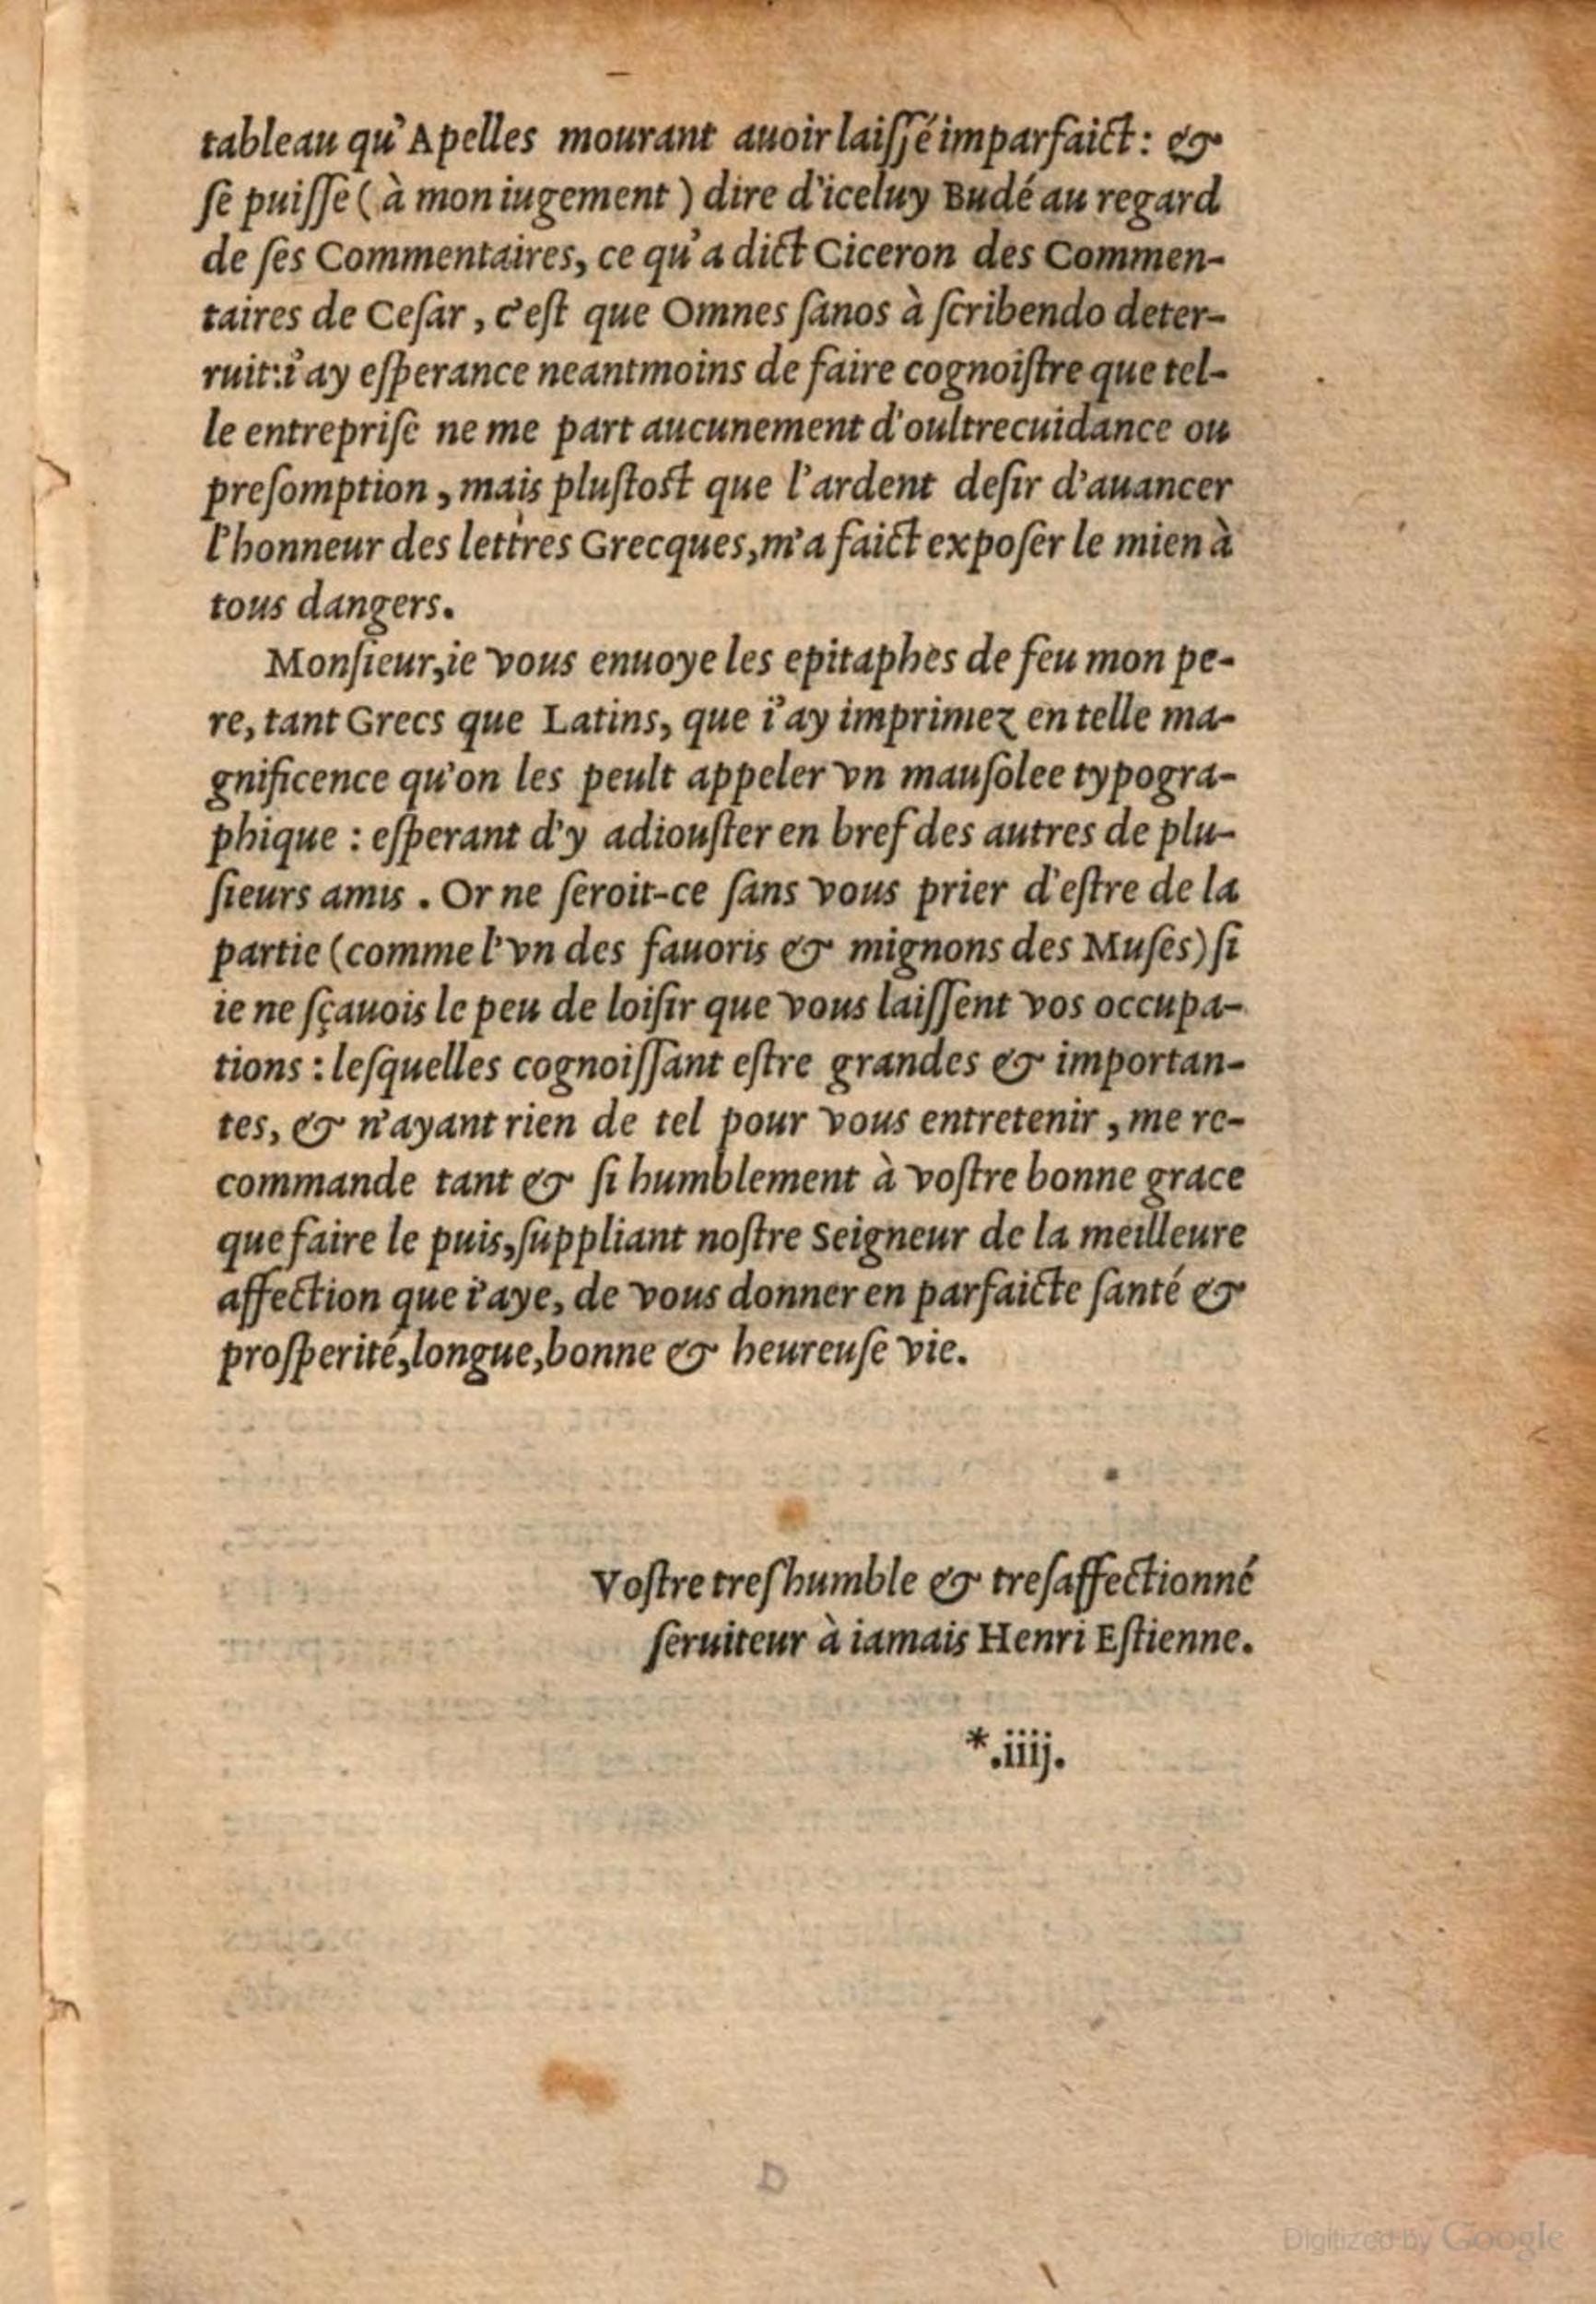 tableau qu'Apelles mourant auoir laiſſé imparfaict: &
ſe puiſſe (à mon iugement) dire d'iceluy Budé au regard
de ſes Commentaires, ce qu'a dict Ciceron des Commen-
taires de Ceſar, c'eſt que Omnes ſanos à ſcribendo deter-
ruit: i'ay eſperance neantmoins de faire cognoiſtre que tel-
le entrepriſe ne me part aucunement d'oultrecuidance ou
preſomption, mais pluſtoſt que l'ardent deſir d'auancer
l'honneur des lettres Grecques, m'a faict expoſer le mien à
tous dangers.
Monſieur, ie vous enuoye les epitaphes de feu mon pe-
re, tant Grecs que Latins, que i'ay imprimez en telle ma-
gnificence qu'on les peult appeler vn mauſolee typogra-
phique : eſperant d'y adiouſter en bref des autres de plu-
ſieurs amis. Or ne ſeroit-ce ſans vous prier d'eſtre de la
partie (comme l'vn des fauoris & mignons des Muſes) ſi
ie ne ſçauois le peu de loiſir que vous laiſſent vos occupa-
tions : leſquelles cognoiſſant eſtre grandes & importan-
tes, & n'ayant rien de tel pour vous entretenir, me re-
commande tant & ſi humblement à voſtre bonne grace
que faire le puis, ſuppliant noſtre Seigneur de la meilleure
affection que i'aye, de vous donner en parfaicte ſanté &
proſperité, longue, bonne & heureuſe vie.
Voſtre treſhumble & treſaffectionné
ſeruiteur à iamais Henri Eſtienne.
*.iiij.
D
Digitized by Google